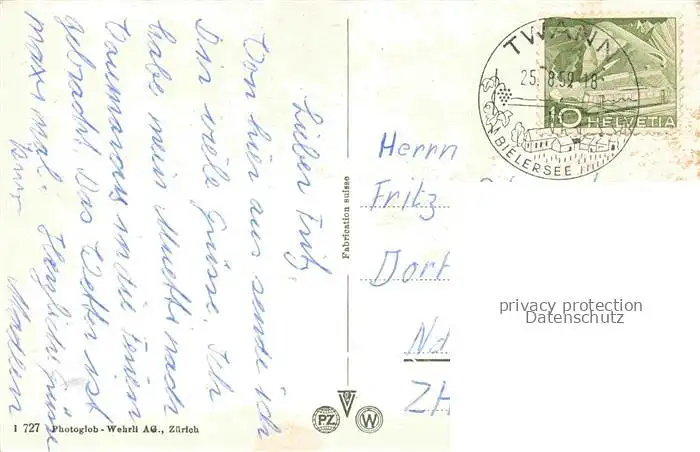 Lieber Fritz,
Von hier aus sende ich
Dir viele Grüsse. Ich
habe mein Muetti nach
in die Ferien
gebracht. Das Wetter ist
maximal. Herzliche Grüsse
Fabrication suisse
TWANN
25. 8. 59-18
BIELERSEE
10 HELVETIA
Herrn
Fritz
Dorf
Nd
ZH
privacy protection
Datenschutz
PZ
W
1 727 Photoglob - Wehrli AG., Zürich